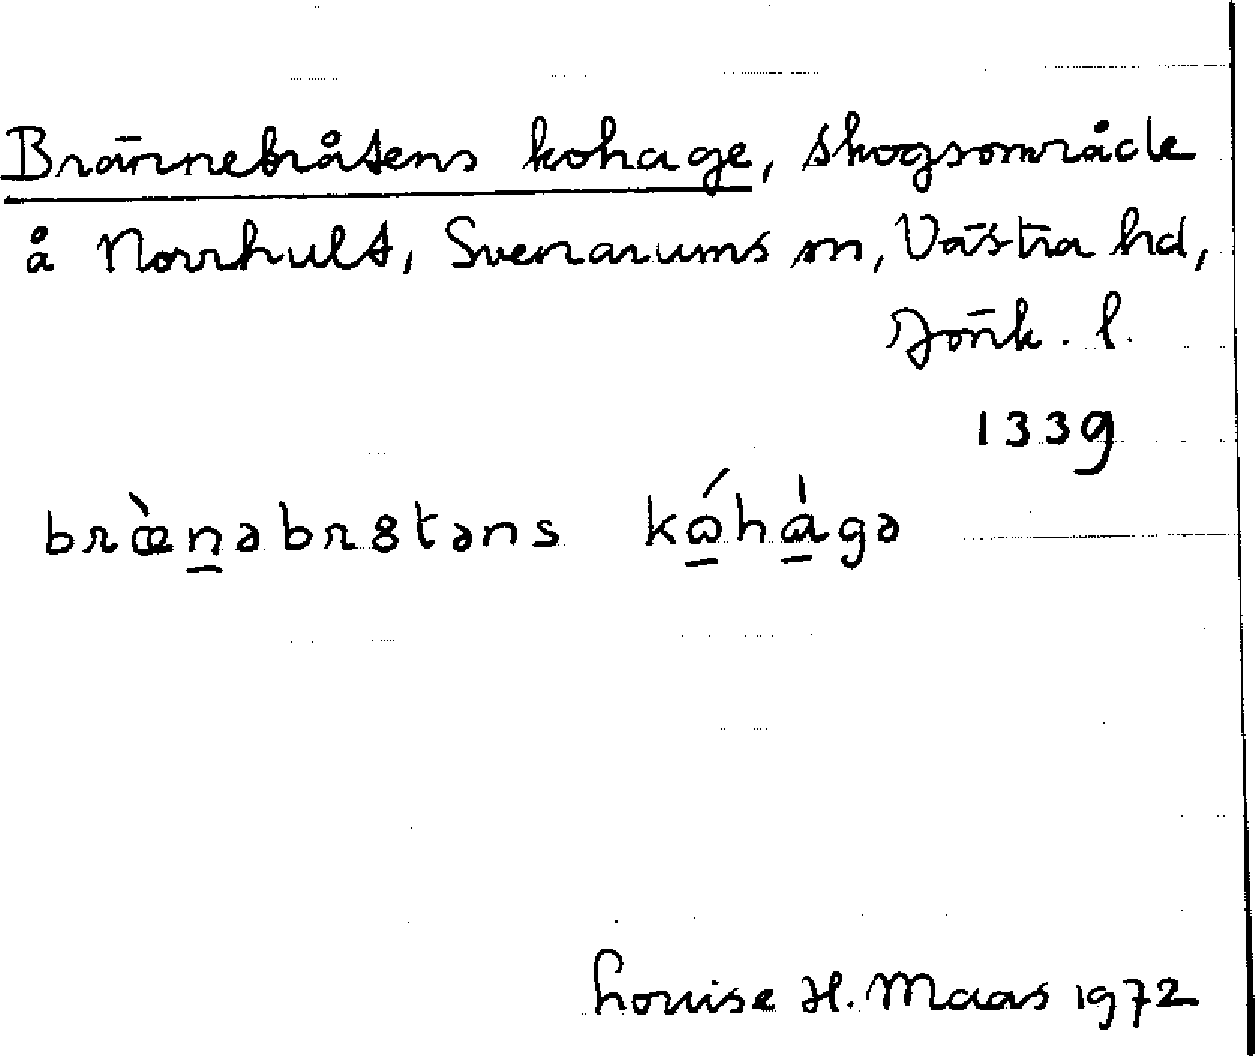 Brännebråtens kohage, skogsområde
å Norrhult, Svenarums sn, Västra hd,
Jönk. l.
1339
bræ̀n̠əbr8təns kώ̠hà̠gə
Louise H. Maas 1972